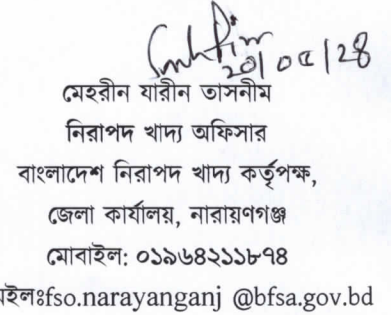 ২০/০৫/২৪
মেহরীন যারীন তাসনীম
নিরাপদ খাদ্য অফিসার
বাংলাদেশ নিরাপদ খাদ্য কর্তৃপক্ষ,
জেলা কার্যালয়, নারায়ণগঞ্জ
মোবাইল: ০১৯৬৪২১১৮৭৪
ইলঃfso.narayanganj @bfsa.gov.bd